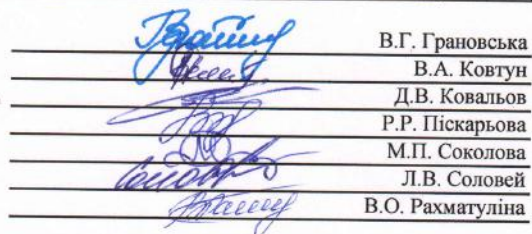 В.Г. Грановська
В.А. Ковтун
Д.В. Ковальов
Р.Р. Піскарьова
М.П. Соколова
Л.В. Соловей
В.О. Рахматуліна